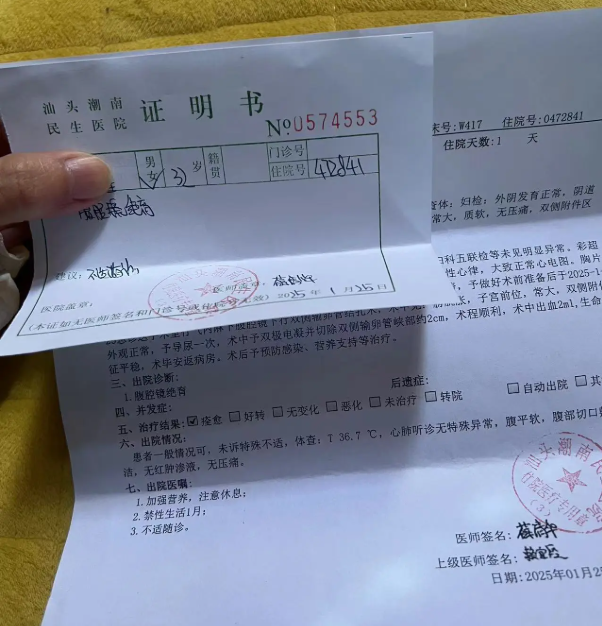 汕头潮南
民生医院
证明书
№0574553
男
女
岁
籍贯
门诊号
住院号
建议：
医院盖章：
医师盖章：
2025年1月25日
(本证如无医师签名和门诊号或住院号无效)
床号:W417 住院号:0472841
住院天数:1 天
妇检：外阴发育正常，阴道
常大，质软，无压痛，双侧附件区
妇科五联检等未见明显异常。彩超
性心律，大致正常心电图。胸片
予做好术前准备后于2025-1
子宫前位，常大，双侧附件
外观正常，予导尿一次，术中予双极电凝并切除双侧输卵管峡部约2cm，术程顺利，术中出血2ml,生命
征平稳，术毕安返病房。术后予预防感染、营养支持等治疗。
三、出院诊断:
1.腹腔镜绝育
四、并发症: 后遗症:
五、治疗结果:☑痊愈 □好转 □无变化 □恶化 □未治疗 □转院 □自动出院 □其
六、出院情况:
患者一般情况可，未诉特殊不适，体查：T 36.7 ℃，心肺听诊无特殊异常，腹平软，腹部切口
洁，无红肿渗液，无压痛。
七、出院医嘱:
1.加强营养，注意休息;
2.禁性生活1月;
3.不适随诊。
医师签名:
上级医师签名:
日期:2025年01月25